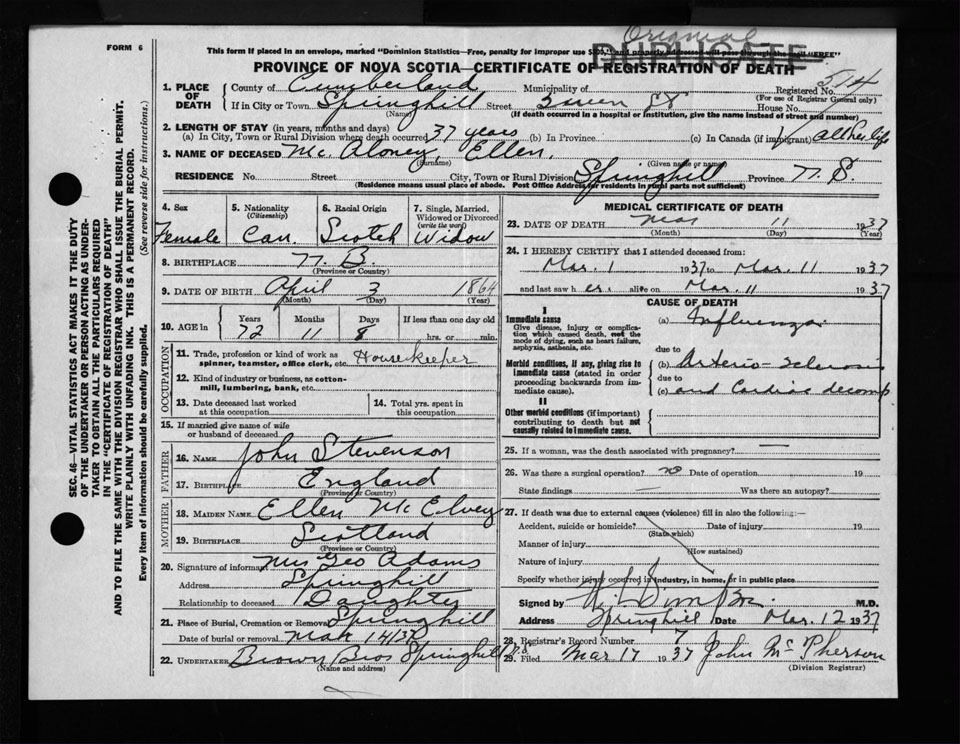 FORM 6
Original
DUPLICATE
This form if placed in an envelope, marked "Dominion Statistics—Free, penalty for improper use $300," and properly addressed will pass through the mail "FREE"
PROVINCE OF NOVA SCOTIA—CERTIFICATE OF REGISTRATION OF DEATH
514
1. PLACE OF DEATH
County of Cumberland Municipality of Registered No.
(For use of Registrar General only)
If in City or Town Springhill Street Queen St House No.
(Name) (If death occurred in a hospital or institution, give the name instead of street and number)
2. LENGTH OF STAY (in years, months and days)
(a) In City, Town or Rural Division where death occurred 37 years (b) In Province (c) In Canada (if immigrant) all her life
3. NAME OF DECEASED Mc Aloney, Ellen.
(Surname) (Given name or names)
RESIDENCE No. Street City, Town or Rural Division Springhill Province N. S.
(Residence means usual place of abode. Post Office Address for residents in rural parts not sufficient)
4. Sex 5. Nationality (Citizenship) 6. Racial Origin 7. Single, Married, Widowed or Divorced (write the word)
Female Can. Scotch Widow
8. BIRTHPLACE N. B.
(Province or Country)
9. DATE OF BIRTH April 3 1864
(Month) (Day) (Year)
10. AGE in Years Months Days If less than one day old
72 11 8 hrs. or min.
OCCUPATION
11. Trade, profession or kind of work as spinner, teamster, office clerk, etc. Housekeeper
12. Kind of industry or business, as cotton-mill, lumbering, bank, etc.
13. Date deceased last worked at this occupation 14. Total yrs. spent in this occupation
15. If married give name of wife or husband of deceased
FATHER
16. NAME John Stevenson
17. BIRTHPLACE England
(Province or Country)
MOTHER
18. MAIDEN NAME Ellen McElvey
19. BIRTHPLACE Scotland
(Province or Country)
20. Signature of informant Mrs Geo Adams
Address Springhill
Relationship to deceased Daughter
21. Place of Burial, Cremation or Removal Springhill
Date of burial or removal Mar 14/37
22. UNDERTAKER Brown Bros Springhill N.S.
(Name and address)
MEDICAL CERTIFICATE OF DEATH
23. DATE OF DEATH Mar 11 1937
(Month) (Day) (Year)
24. I HEREBY CERTIFY that I attended deceased from:
Mar. 1 1937 to Mar. 11 1937
and last saw her alive on Mar. 11 1937
CAUSE OF DEATH
I
Immediate cause (a) Influenza
Give disease, injury or complication which caused death, not the mode of dying, such as heart failure, asphyxia, asthenia, etc.
due to
Morbid conditions, if any, giving rise to immediate cause (stated in order proceeding backwards from immediate cause).
(b) Arterio-sclerosis
due to
(c) and Cardiac decomp
II
Other morbid conditions (if important) contributing to death but not causally related to immediate cause.
25. If a woman, was the death associated with pregnancy?
26. Was there a surgical operation? no Date of operation 19
State findings Was there an autopsy?
27. If death was due to external causes (violence) fill in also the following:—
Accident, suicide or homicide? Date of injury 19
(State which)
Manner of injury
(How sustained)
Nature of injury
Specify whether injury occurred in industry, in home, or in public place
Signed by M.D.
Address Springhill Date Mar. 12 1937
28. Registrar's Record Number 7
29. Filed Mar 17 1937 John McPherson
(Division Registrar)
SEC. 46—VITAL STATISTICS ACT MAKES IT THE DUTY
OF THE UNDERTAKER OR PERSON ACTING AS UNDER-
TAKER TO OBTAIN ALL THE PARTICULARS REQUIRED
IN THE "CERTIFICATE OF REGISTRATION OF DEATH"
AND TO FILE THE SAME WITH THE DIVISION REGISTRAR WHO SHALL ISSUE THE BURIAL PERMIT.
WRITE PLAINLY WITH UNFADING INK. THIS IS A PERMANENT RECORD.
Every item of information should be carefully supplied. (See reverse side for instructions.)